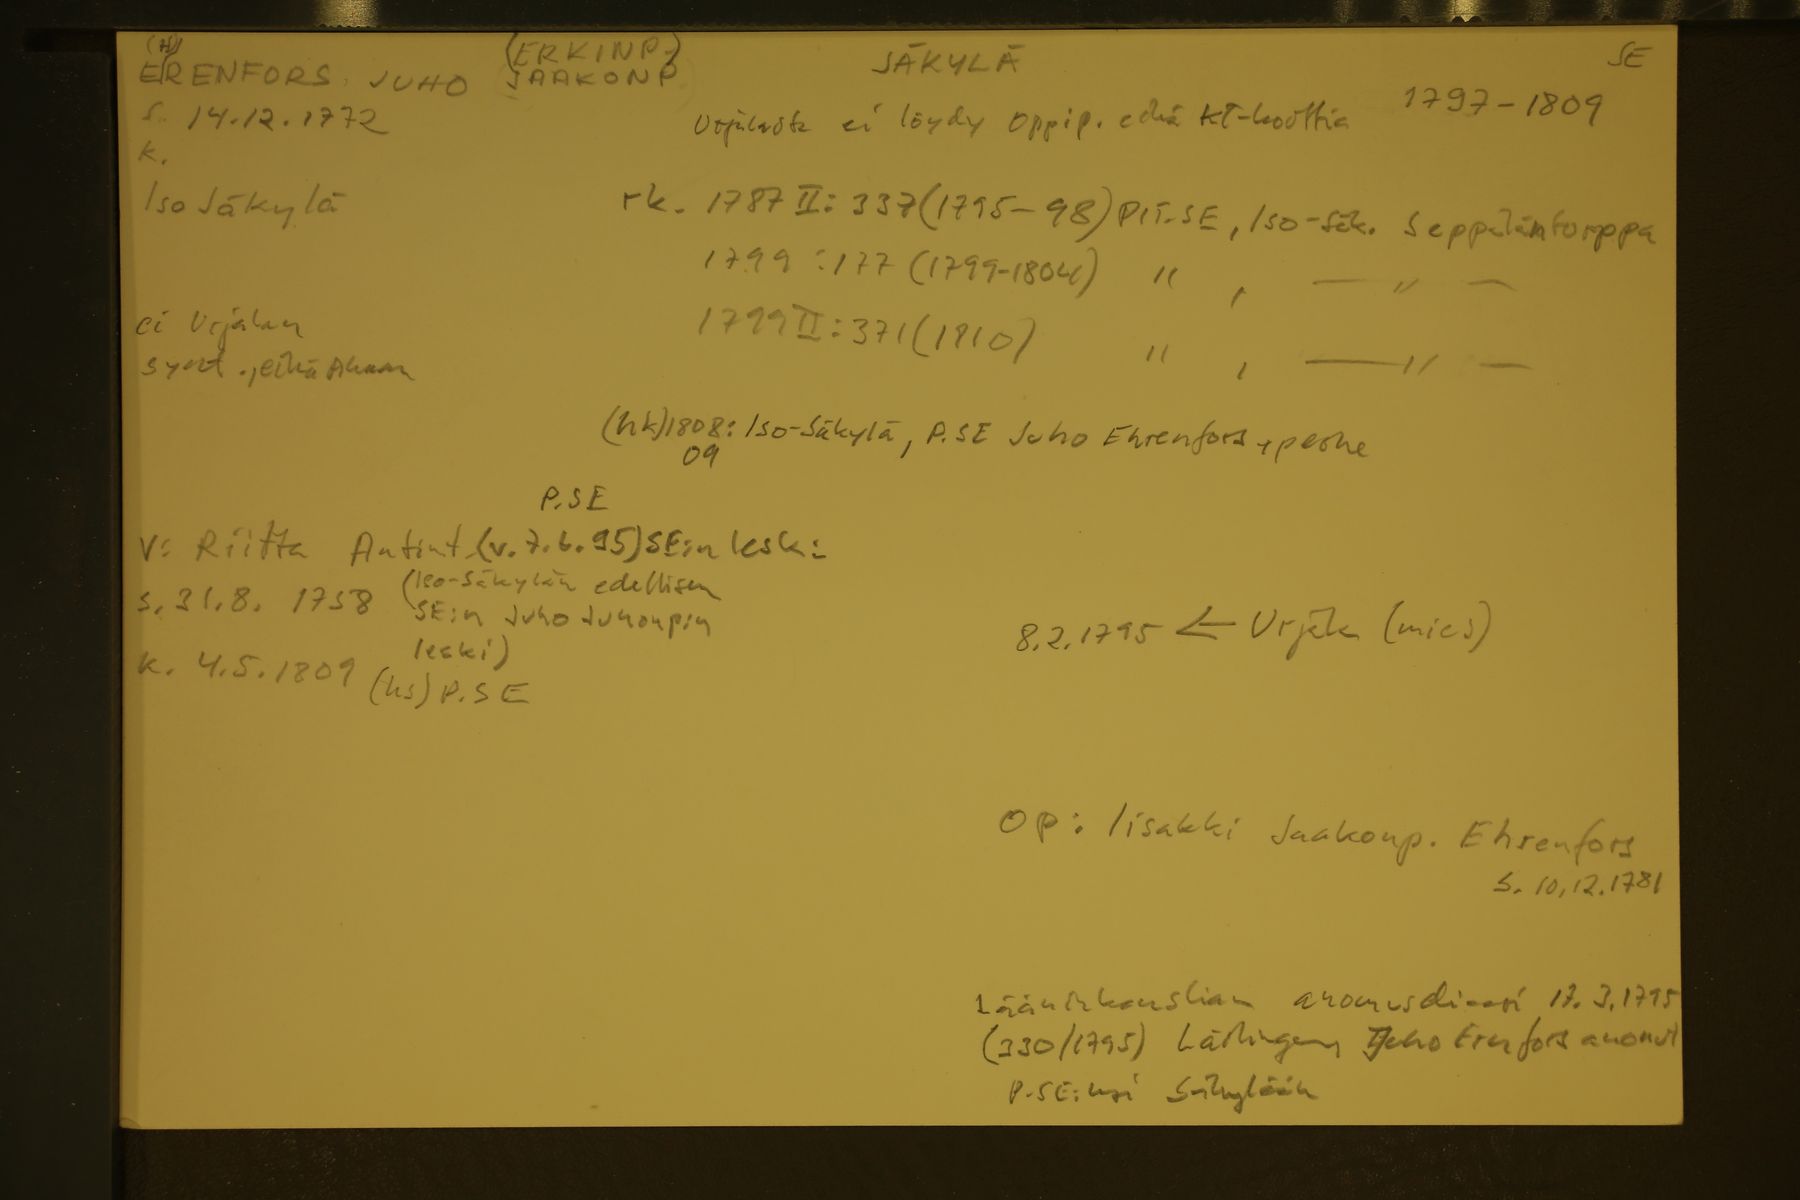 (H) (ERKINP.) SÄKYLÄ SE
ERENFORS, JUHO JAAKONP.
s. 14.12.1772 1797-1809
Urjalasta ei löydy oppip. eikä KT-korttia
k.
Iso Säkylä rk. 1787 II: 337 (1795-98) PIT.SE, Iso-Säk. Seppäläntorppa
1799 : 177 (1799-1804) " , — " —
ei Urjalan 1799 II: 371 (1810) " , — " —
synt., eikä Akaan
(hk) 1808: Iso-Säkylä, P.SE Juho Ehrenfors + perhe
09
P.SE
V: Riitta Antint. (v. 7.6.95) SE:n leski:
s. 31.8. 1758 (Iso-Säkylän edellisen
SE:n Juho Juhonp:n
leski)
8.2.1795 ← Urjala (mies)
k. 4.5.1809 (hs) P.SE
OP: Iisakki Jaakonp. Ehrenfors
s. 10.12.1781
Lääninkanslian anomusdiaari 17.3.1795
(330/1795) Lärlingen Juho Erenfors anonut
P.SE:ksi Säkylään